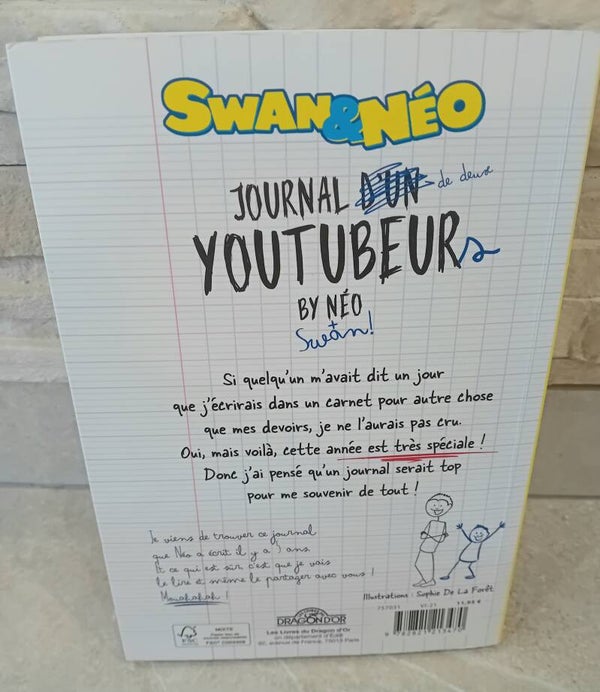 SWAN & NÉO
JOURNAL D'UN de deux
YOUTUBEURs
BY NÉO
+ Swan!
Si quelqu'un m'avait dit un jour
que j'écrirais dans un carnet pour autre chose
que mes devoirs, je ne l'aurais pas cru.
Oui, mais voilà, cette année est très spéciale !
Donc j'ai pensé qu'un journal serait top
pour me souvenir de tout !
Je viens de trouver ce journal
que Néo a écrit il y a 3 ans.
Et ce qui est sûr c'est que je vais
le lire et même le partager avec vous !
Mouahahah !
Illustrations : Sophie De La Forêt
757031 VI-21 11,95 €
DRAGON D'OR
Les Livres du Dragon d'Or
un département d'Édi8
92, avenue de France, 75013 Paris
FSC
MIXTE